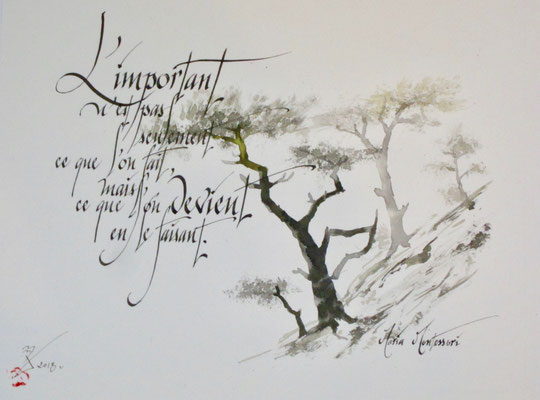 L'important
n'est pas
seulement
ce que l'on fait,
mais
ce que l'on devient
en le faisant.
Maria Montessori
2018